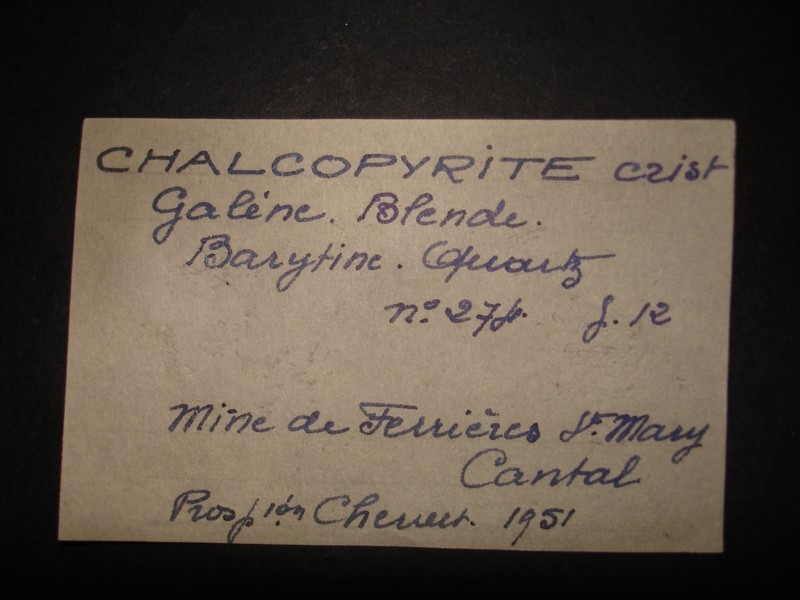 CHALCOPYRITE crist
Galène. Blende.
Barytine. Quartz
n° 12
Mine de Ferrières St. Mary
Cantal
Prosp^ion 1951